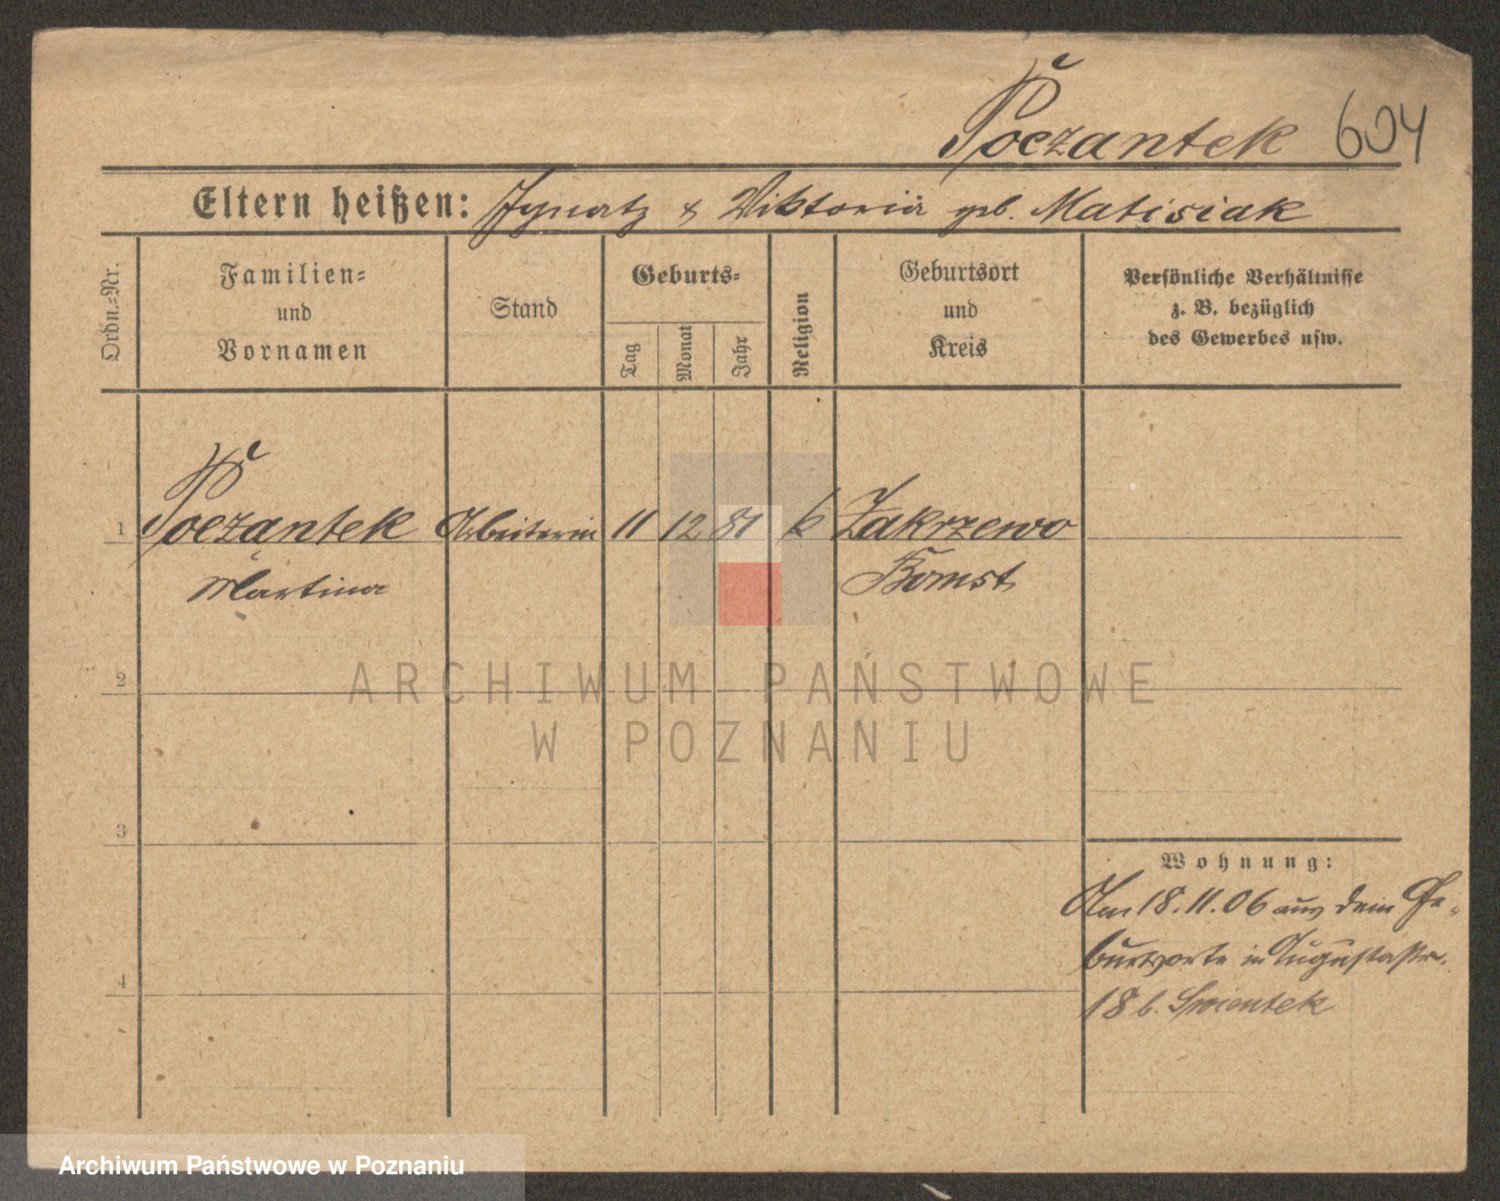 Poczantek 604
Eltern heißen: Ignatz & Viktoria geb. Matisiak
Ordn.=Nr.
Familien=
und
Vornamen
Stand
Geburts=
Tag
Monat
Jahr
Religion
Geburtsort
und
Kreis
Persönliche Verhältnisse
z. B. bezüglich
des Gewerbes usw.
1 Poczantek Arbeiterin 11 12 81 k Zakrzewo
Martina Bomst
2
ARCHIWUM PAŃSTWOWE
W POZNANIU
3
Wohnung:
Am 18.11.06 aus dem Ge-
burtsorte in Augustastr.
4
18 b. Swiontek
Archiwum Państwowe w Poznaniu